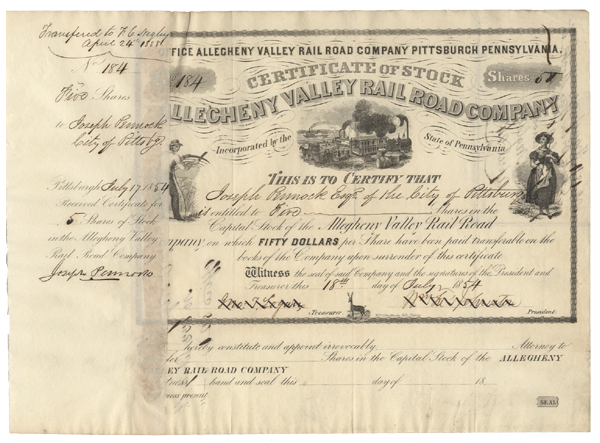 Transferred to F. C. Negley
April 24th 1858
No 184
Five Shares
to Joseph Pennock
City of Pittsbg.
Pittsburgh July 17 1854
Received Certificate for
5 Shares of Stock
in the Allegheny Valley
Rail Road Company
Joseph Pennock
OFFICE ALLEGHENY VALLEY RAIL ROAD COMPANY PITTSBURGH PENNSYLVANIA.
184
CERTIFICATE OF STOCK
Shares 5
ALLEGHENY VALLEY RAIL ROAD COMPANY
Incorporated by the State of Pennsylvania
THIS IS TO CERTIFY THAT
Joseph Pennock Esqr. of the City of Pittsburg
is entitled to Five Shares in the
Capital Stock of the Allegheny Valley Rail Road
Company on which FIFTY DOLLARS per Share have been paid transferable on the
books of the Company upon surrender of this certificate
Witness the seal of said Company and the signatures of the President and
Treasurer this 18th day of July 1854
Treasurer President
hereby constitute and appoint irrevocably Attorney to
Shares in the Capital Stock of the ALLEGHENY
LEY RAIL ROAD COMPANY
hand and seal this day of 18
ness present